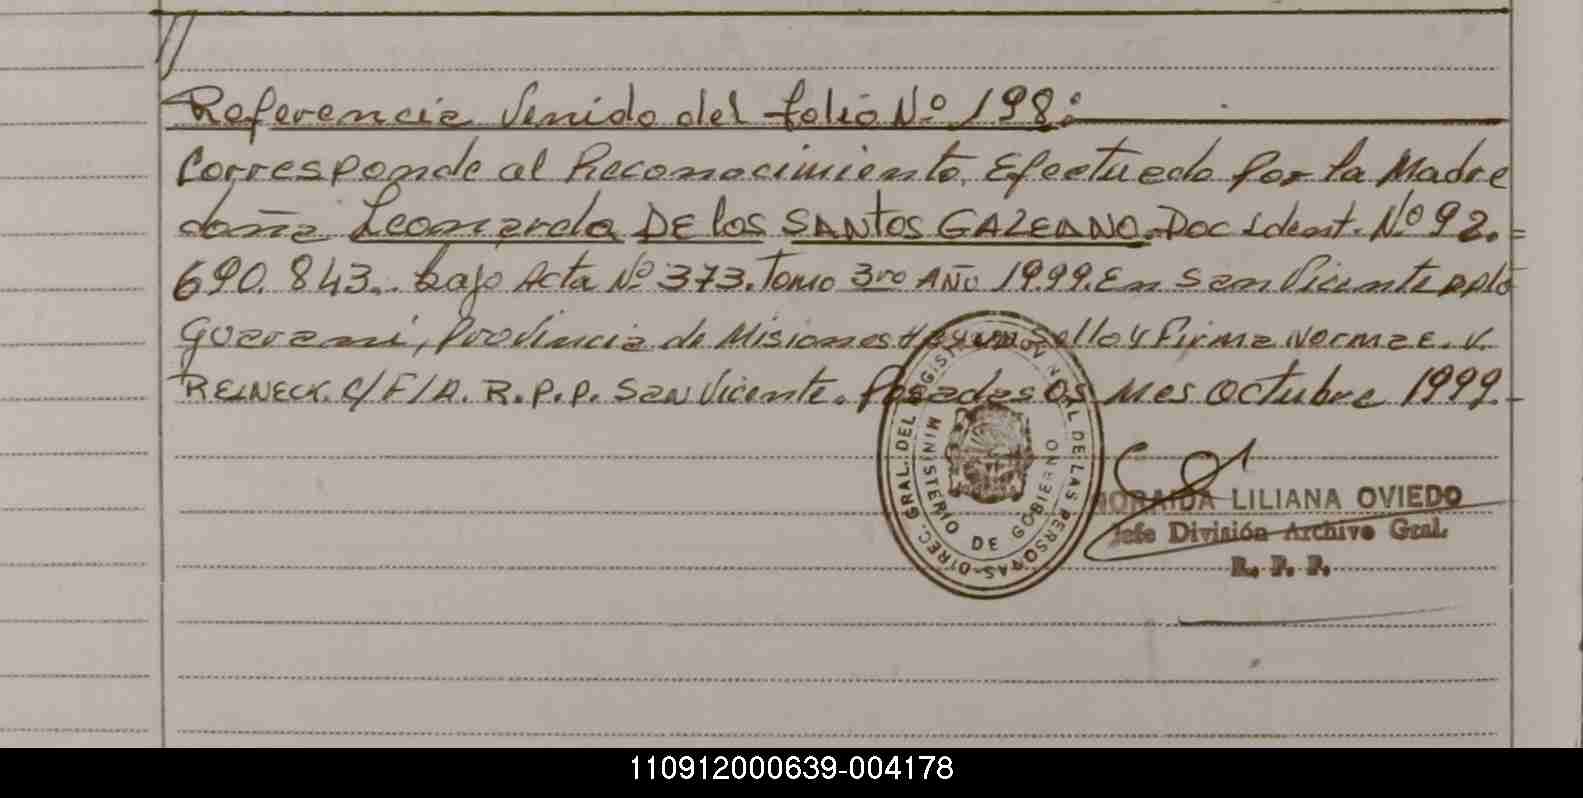 //
Referencia Venido del folio Nº 198:
Corresponde al Reconocimiento, Efectuado Por la Madre
doña Leonarda DE los SANTOS GALEANO. Doc Ident. Nº 92.=
690.843.. bajo Acta Nº 373. Tomo 3ro AÑO 1999. En San Vicente Dpto
Guarani, Provincia de Misiones Hay un Sello y Firma Norma E. V.
REINECK. C/F/A. R.P.P. San Vicente. Posadas 05 Mes Octubre 1999.-
DIREC. GRAL. DEL REGISTRO PROVINCIAL DE LAS PERSONAS-
MINISTERIO DE GOBIERNO
LILIANA OVIEDO
Jefe División Archivo Gral.
R. P. P.
110912000639-004178